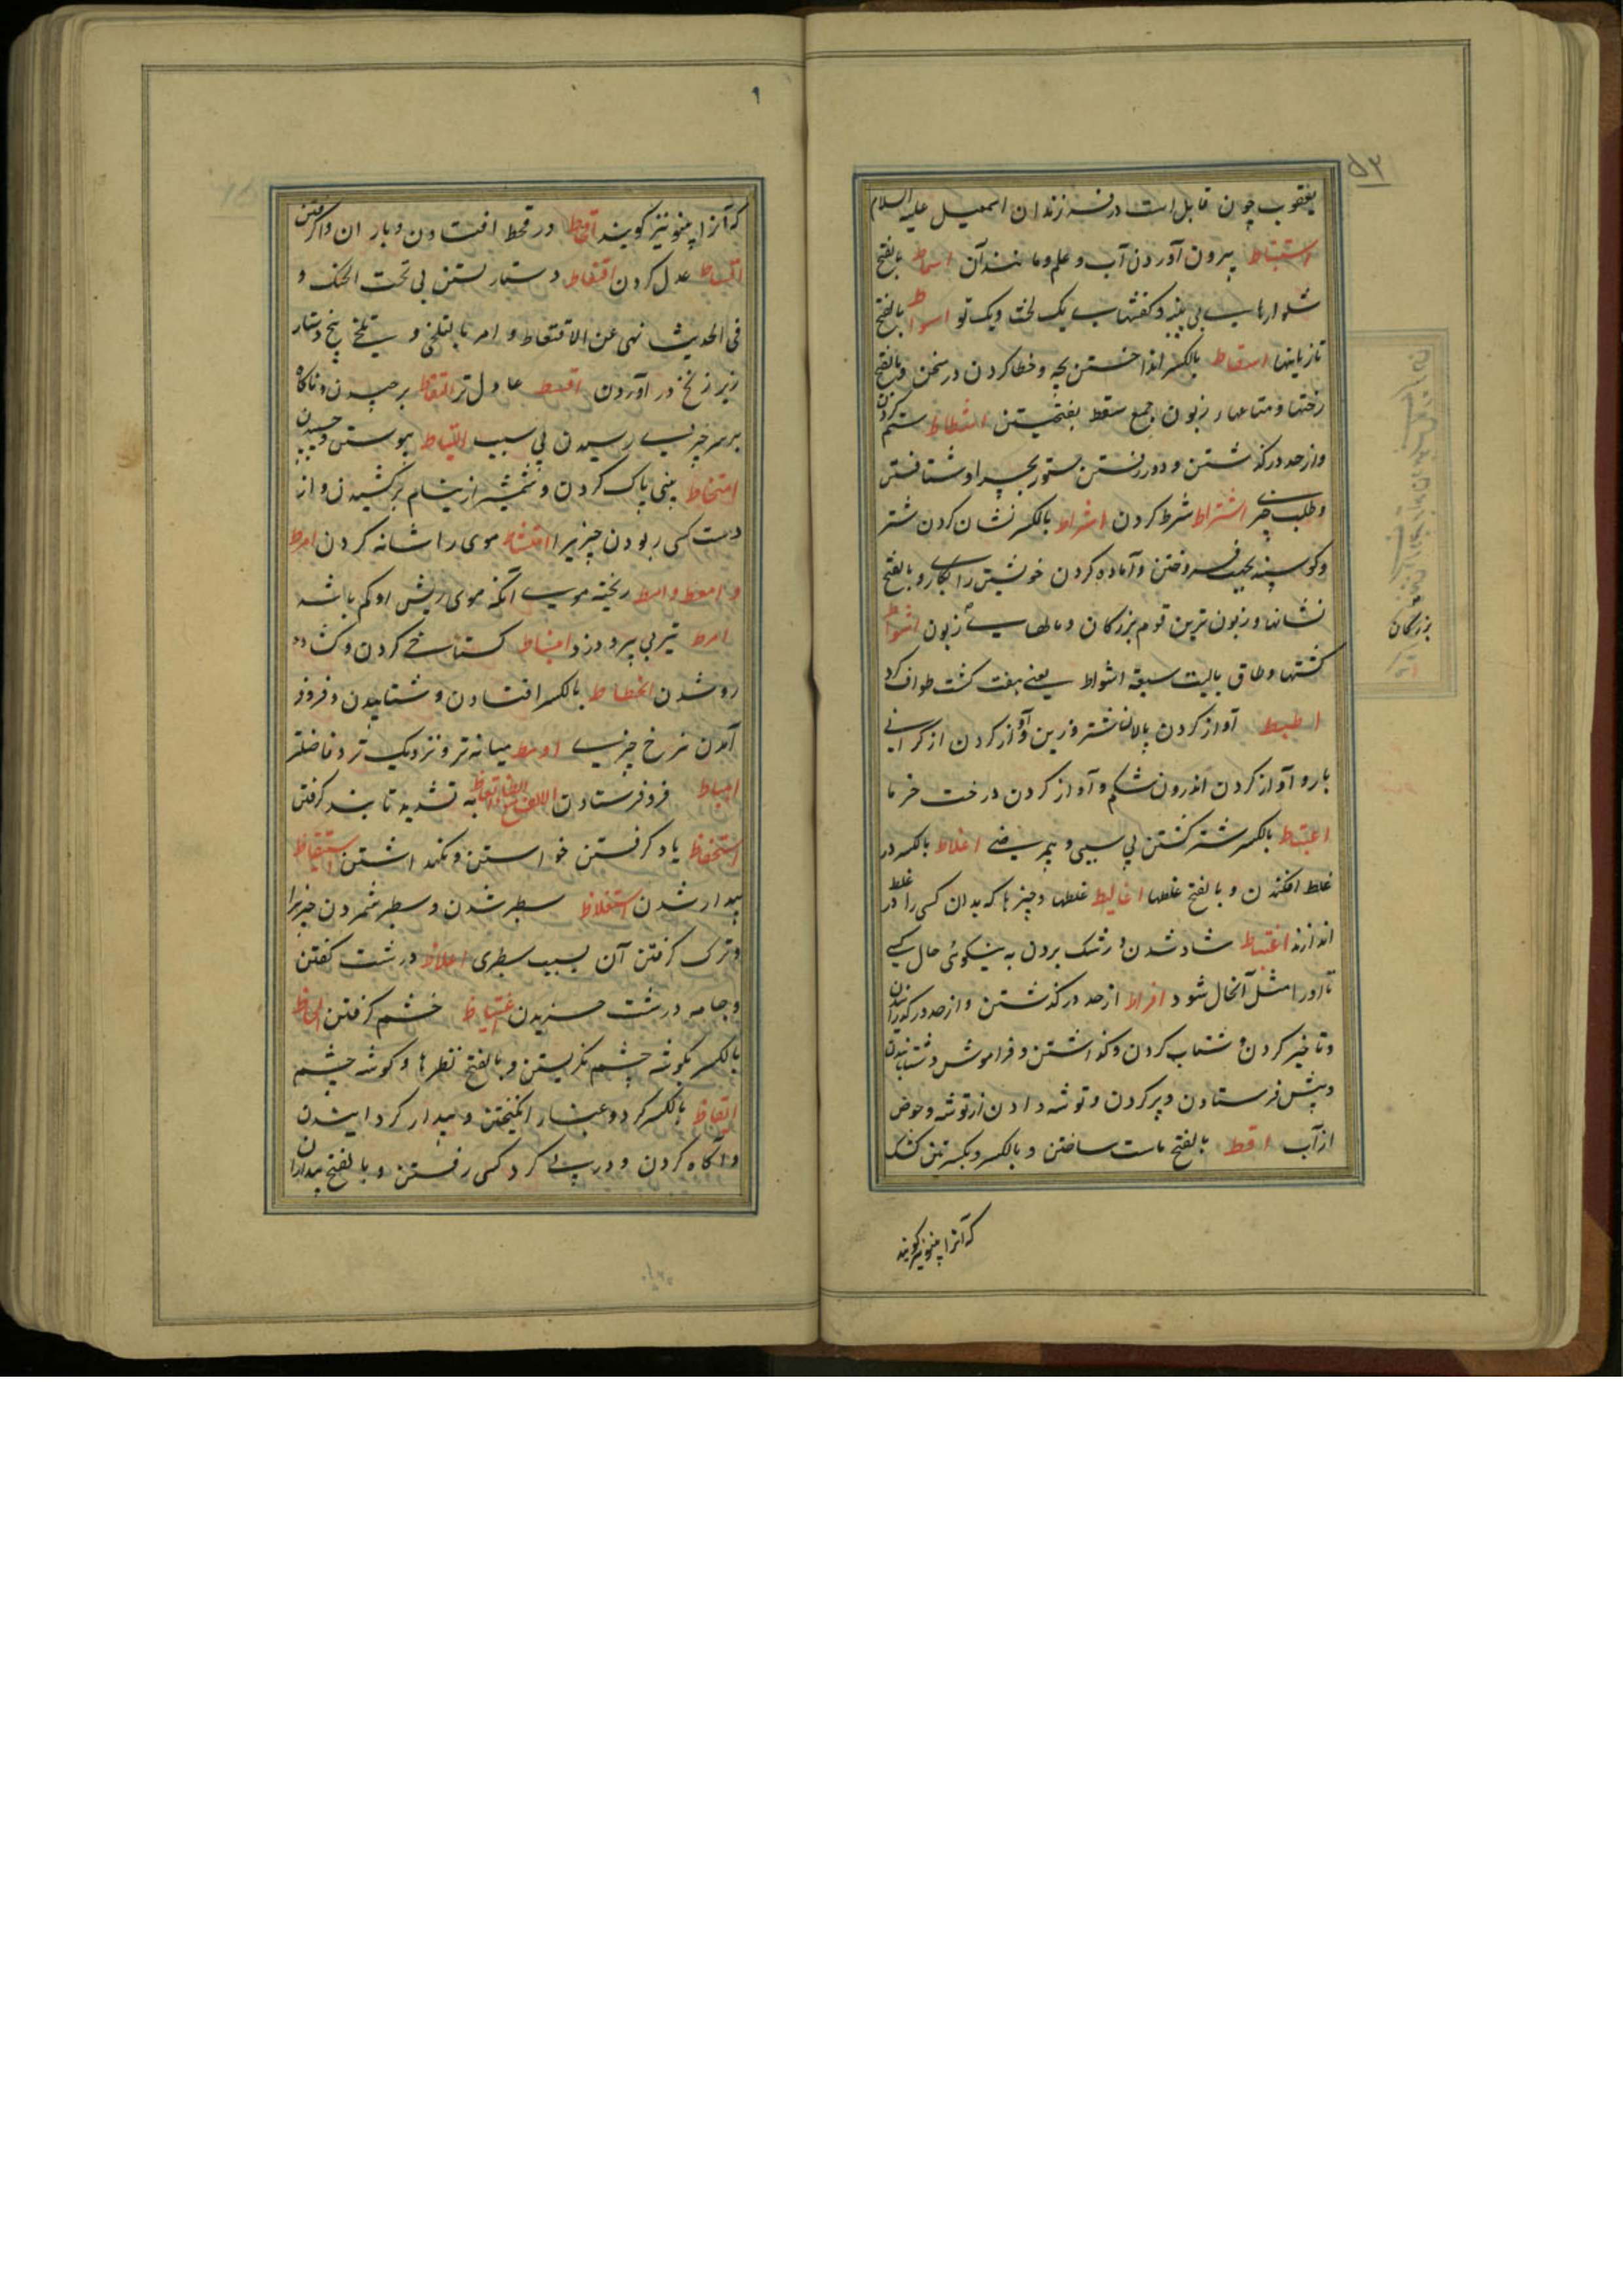 ۵۳
یعقوب چون قابل است در فرزندان اسمعیل علیه السلام
استنباط بیرون آوردن آب و علم و مانند آن اسماط بالفتح
شلوارهای بی پنبه و کفشهای یک لخت و یک تو اسواط بالفتح
تازیانها اسقاط بالکسر انداختن بچه و خطا کردن در سخن و بالفتح
رختها و متاعهای زبون جمع سقط بفتحتین اشطاط ستم کردن
و از حد درگذشتن و دور رفتن ستور بچرا و شتافتن
و طلب چیزی اشتراط شرط کردن اشراط بالکسر نشان کردن شتر
و کوسپند بجهت فروختن و آماده کردن خویشتن را بکاری و بالفتح
نشانها و زبون ترین قوم بزرکان و مالهای زبون اشواط
کشتها و طاف بالبیت سبعة اشواط یعنی هفت کشت طواف کرد
اطیط آواز کردن پالان شتر و زین و آواز کردن از کرانی
بار و آواز کردن اندرون شکم و آواز کردن درخت خرما
اعتباط بالکسر شتر کشتن بی سببی و بیمرضی اغلاط بالکسر در
غلط افکندن و بالفتح غلطها اغالیط غلطها و چیزها که بدان کسی را در غلط
اندازند اغتباط شاد شدن و رشک بردن به نیکوئی حال کسی
تا او را مثل آنحال شود افراط از حد درکذشتن و از حد درکذرانیدن
و تاخیر کردن و شتاب کردن و کذاشتن و فراموش و شتابانیدن
و پیش فرستادن و پر کردن و توشه دادن از توشه و حوض
از آب اقط بالفتح ماست ساختن و بالکسر و بکسرتین کشک
که آنرا پینو نیز کویند
بزرکان
۹
که آنرا پینو نیز کویند اقحاط در قحط افتادن و باران واکرفتن
اقساط عدل کردن اقتعاط دستار بستن بی تحت الحنک و
فی الحدیث نهی عن الاقتعاط و امر بالتلحی و تلحی پیچ دستار
زیر زنخ در آوردن اقسط عادل تر التقاط برچیدن و ناکاه
بر سر چیزی رسیدن بی سبب التیاط پیوستن و چسپیدن
امتخاط بینی پاک کردن و شمشیر از نیام برکشیدن و از
دست کسی ربودن چیزیرا امتشاط موی را شانه کردن امرط
و امعط و املط ریخته موی آنکه موی ریش او کم باشد
امرط تیر بی پر و دزد انبساط کستاخی کردن و کشاده
رو شدن انحطاط بالکسر افتادن و شتابیدن و فرود
آمدن نرخ چیزی اوسط میانه تر و نزدیک تر و فاضلتر
اهباط فرو فرستادن الالف مع الظاء اتعاظ به تشدید تا پند کرفتن
استحفاظ یاد کرفتن خواستن و نکه داشتن استیقاظ
بیدار شدن استغلاظ سطبر شدن و سطبر شمردن چیزیرا
و ترک کرفتن آن بسبب سطبری اغلاظ درشت کفتن
و جامه درشت خریدن اغتیاظ خشم کرفتن الحاظ
بالکسر بکوشه چشم نکریستن و بالفتح نظرها و کوشه چشم
ایقاظ بالکسر کرد و غبار انکیختن و بیدار کردانیدن
و آکاه کردن و در پی کرد کسی رفتن و بالفتح بیداران